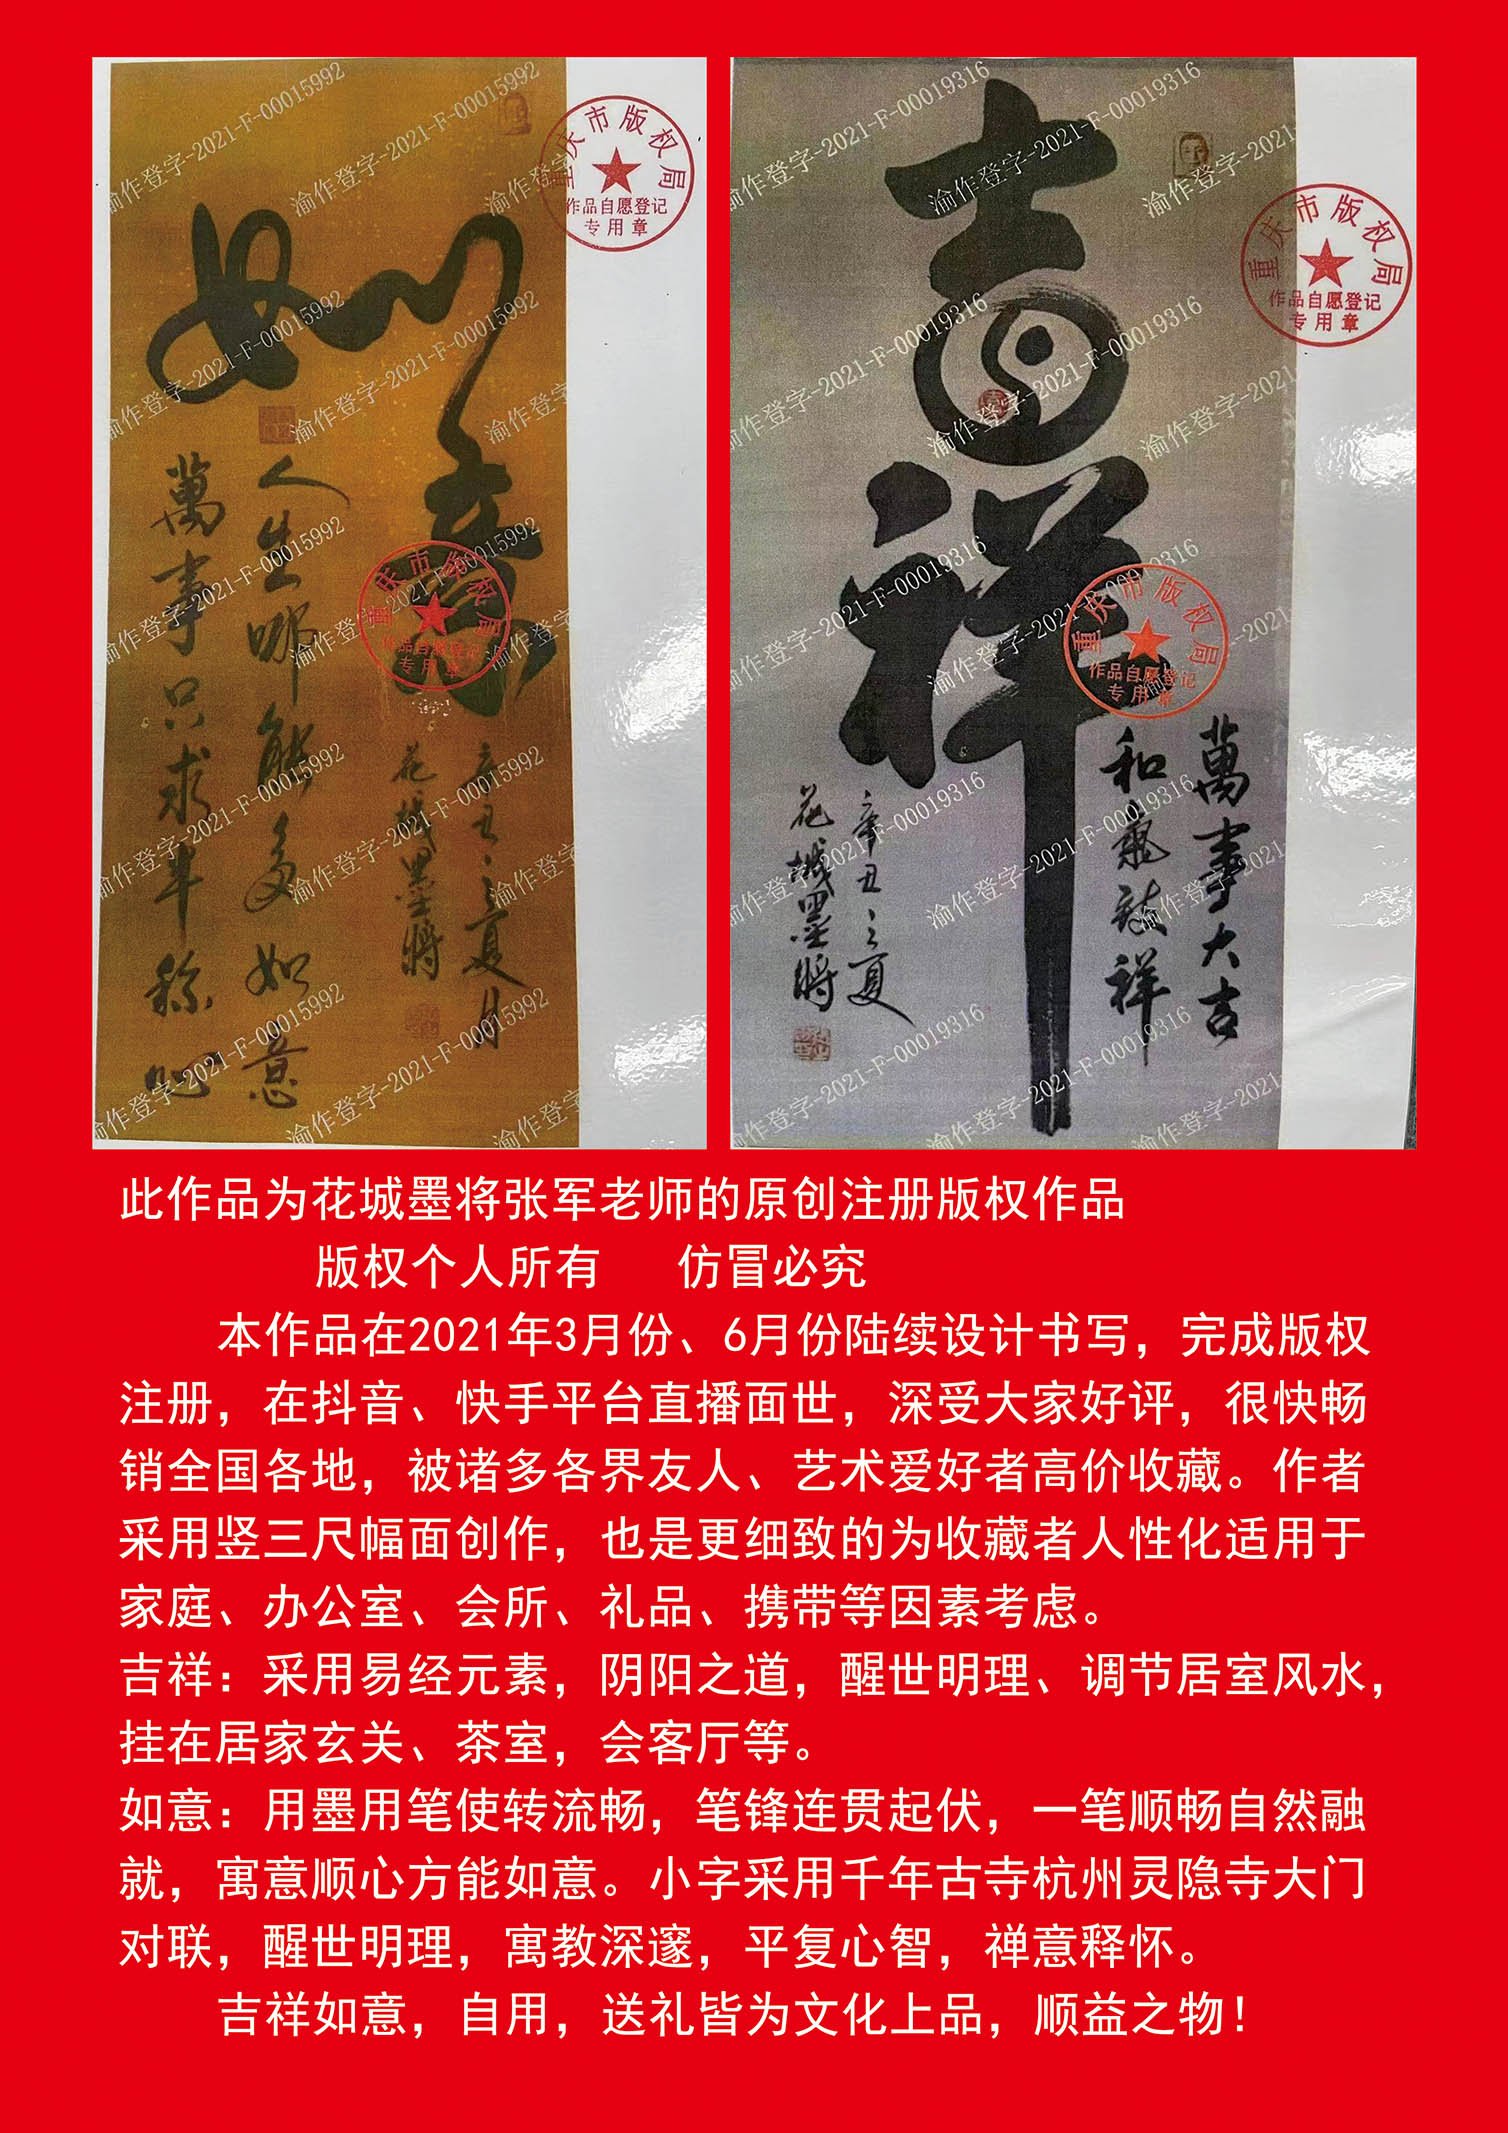 如意
人生哪能多如意
萬事只求半称心
辛丑之夏月
花城墨将
重庆市版权局
作品自愿登记
专用章
重庆市版权局
作品自愿登记
专用章
渝作登字-2021-F-00015992
吉祥
萬事大吉
和氣致祥
辛丑之夏
花城墨将
重庆市版权局
作品自愿登记
专用章
重庆市版权局
作品自愿登记
专用章
渝作登字-2021-F-00019316
此作品为花城墨将张军老师的原创注册版权作品
版权个人所有 仿冒必究
本作品在2021年3月份、6月份陆续设计书写，完成版权
注册，在抖音、快手平台直播面世，深受大家好评，很快畅
销全国各地，被诸多各界友人、艺术爱好者高价收藏。作者
采用竖三尺幅面创作，也是更细致的为收藏者人性化适用于
家庭、办公室、会所、礼品、携带等因素考虑。
吉祥：采用易经元素，阴阳之道，醒世明理、调节居室风水，
挂在居家玄关、茶室，会客厅等。
如意：用墨用笔使转流畅，笔锋连贯起伏，一笔顺畅自然融
就，寓意顺心方能如意。小字采用千年古寺杭州灵隐寺大门
对联，醒世明理，寓教深邃，平复心智，禅意释怀。
吉祥如意，自用，送礼皆为文化上品，顺益之物！